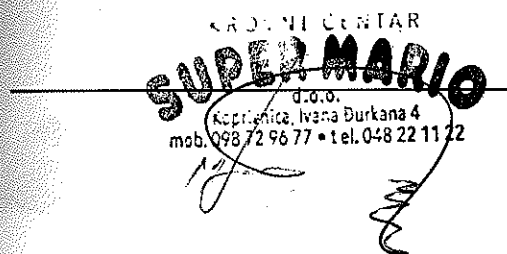 CENTAR
SUPER MARIO
d.o.o.
Koprivnica, Ivana Đurkana 4
mob. 098 72 96 77 • tel. 048 22 11 22